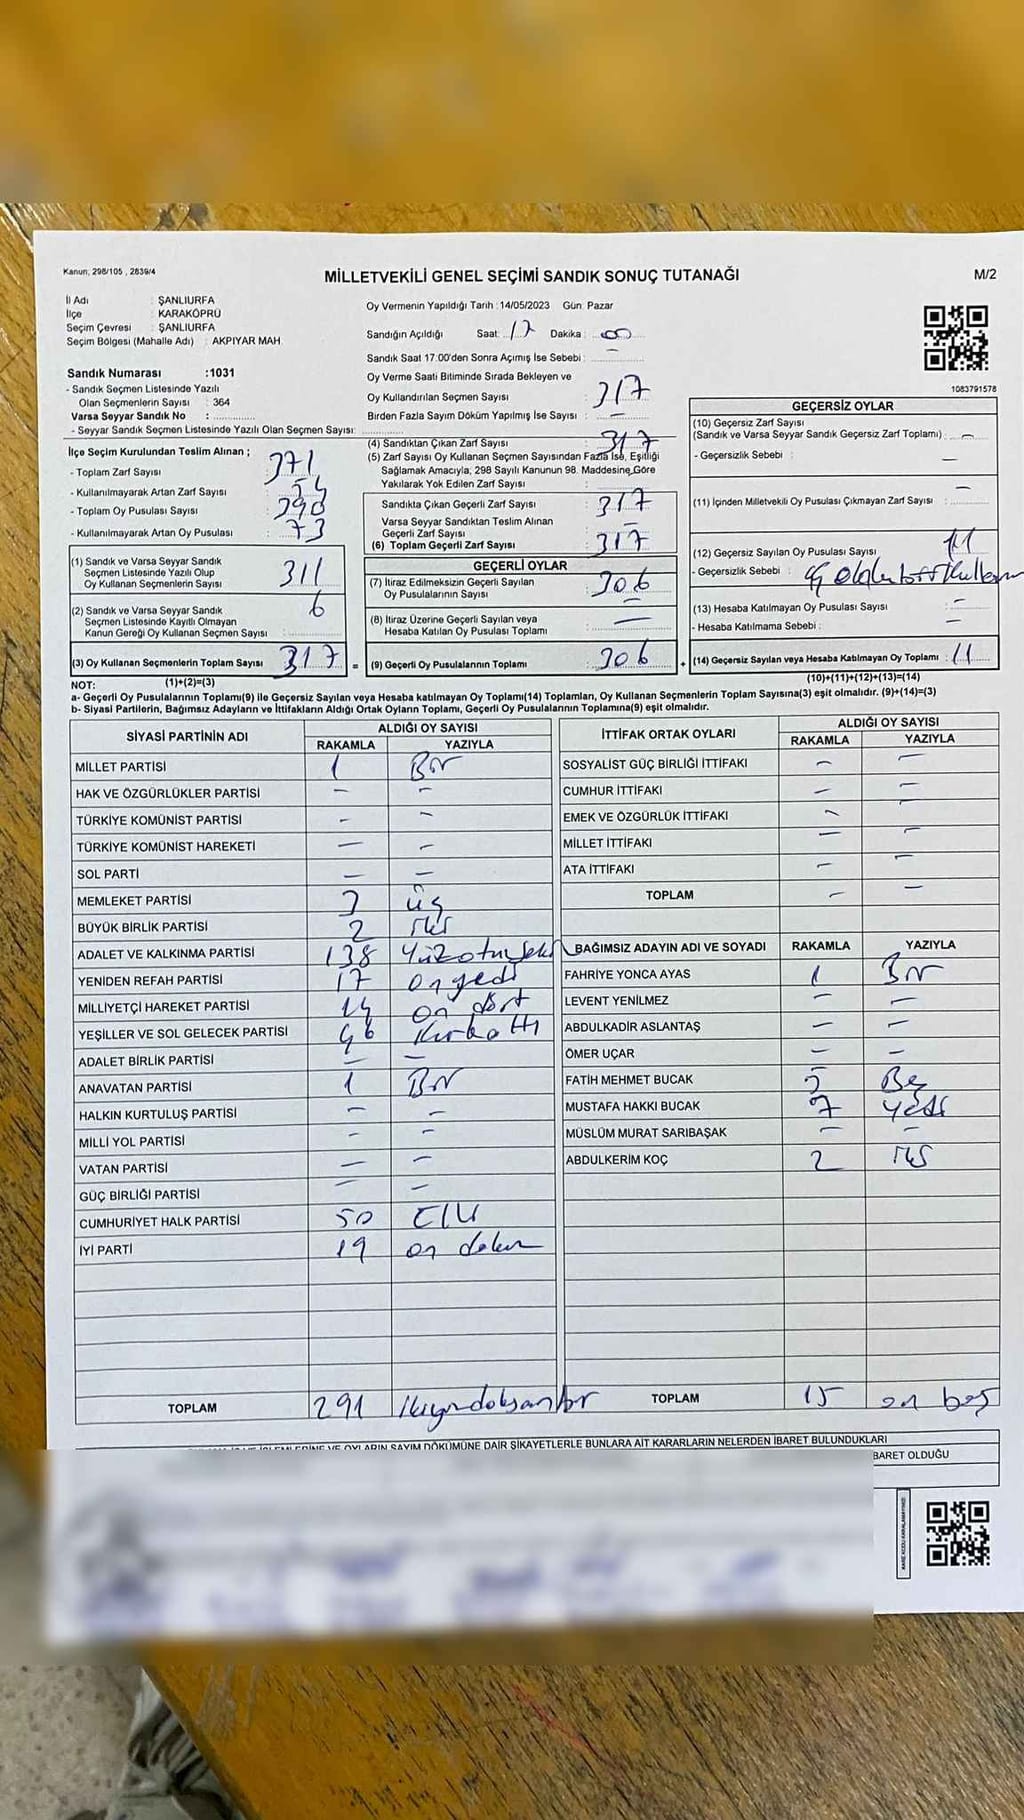 Kanun; 298/105 , 2839/4
MİLLETVEKİLİ GENEL SEÇİMİ SANDIK SONUÇ TUTANAĞI
M/2
İl Adı : ŞANLIURFA
İlçe : KARAKÖPRÜ
Seçim Çevresi : ŞANLIURFA
Seçim Bölgesi (Mahalle Adı) : AKPIYAR MAH.
Sandık Numarası :1031
- Sandık Seçmen Listesinde Yazılı
Olan Seçmenlerin Sayısı : 364
Varsa Seyyar Sandık No :
- Seyyar Sandık Seçmen Listesinde Yazılı Olan Seçmen Sayısı:
Oy Vermenin Yapıldığı Tarih :14/05/2023 Gün: Pazar
Sandığın Açıldığı Saat: 17 Dakika : 00
Sandık Saat 17.00'den Sonra Açımış İse Sebebi : –
Oy Verme Saati Bitiminde Sırada Bekleyen ve
Oy Kullandırılan Seçmen Sayısı : 317
Birden Fazla Sayım Döküm Yapılmış İse Sayısı : –
1083791578
İlçe Seçim Kurulundan Teslim Alınan ;
- Toplam Zarf Sayısı : 371
- Kullanılmayarak Artan Zarf Sayısı : 54
- Toplam Oy Pusulası Sayısı : 390
- Kullanılmayarak Artan Oy Pusulası : 73
(1) Sandık ve Varsa Seyyar Sandık
Seçmen Listesinde Yazılı Olup
Oy Kullanan Seçmenlerin Sayısı : 311
(2) Sandık ve Varsa Seyyar Sandık
Seçmen Listesinde Kayıtlı Olmayan
Kanun Gereği Oy Kullanan Seçmen Sayısı : 6
(3) Oy Kullanan Seçmenlerin Toplam Sayısı : 317 =
(4) Sandıktan Çıkan Zarf Sayısı : 317
(5) Zarf Sayısı Oy Kullanan Seçmen Sayısından Fazla İse, Eşitliği
Sağlamak Amacıyla; 298 Sayılı Kanunun 98. Maddesine Göre
Yakılarak Yok Edilen Zarf Sayısı :
Sandıkta Çıkan Geçerli Zarf Sayısı : 317
Varsa Seyyar Sandıktan Teslim Alınan
Geçerli Zarf Sayısı : –
(6) Toplam Geçerli Zarf Sayısı : 317
GEÇERLİ OYLAR
(7) İtiraz Edilmeksizin Geçerli Sayılan
Oy Pusulalarının Sayısı : 306
(8) İtiraz Üzerine Geçerli Sayılan veya
Hesaba Katılan Oy Pusulası Toplamı : –
(9) Geçerli Oy Pusulalarının Toplamı : 306 +
GEÇERSİZ OYLAR
(10) Geçersiz Zarf Sayısı
(Sandık ve Varsa Seyyar Sandık Geçersiz Zarf Toplamı) : –
- Geçersizlik Sebebi : –
(11) İçinden Milletvekili Oy Pusulası Çıkmayan Zarf Sayısı : –
(12) Geçersiz Sayılan Oy Pusulası Sayısı : 11
- Geçersizlik Sebebi :
(13) Hesaba Katılmayan Oy Pusulası Sayısı : –
- Hesaba Katılmama Sebebi : –
(14) Geçersiz Sayılan veya Hesaba Katılmayan Oy Toplamı : 11
NOT: (1)+(2)=(3)
(10)+(11)+(12)+(13)=(14)
a- Geçerli Oy Pusulalarının Toplamı(9) ile Geçersiz Sayılan veya Hesaba katılmayan Oy Toplamı(14) Toplamları, Oy Kullanan Seçmenlerin Toplam Sayısına(3) eşit olmalıdır. (9)+(14)=(3)
b- Siyasi Partilerin, Bağımsız Adayların ve İttifakların Aldığı Ortak Oyların Toplamı, Geçerli Oy Pusulalarının Toplamına(9) eşit olmalıdır.
SİYASİ PARTİNİN ADI ALDIĞI OY SAYISI
RAKAMLA YAZIYLA
MİLLET PARTİSİ 1 Bir
HAK VE ÖZGÜRLÜKLER PARTİSİ – –
TÜRKİYE KOMÜNİST PARTİSİ – –
TÜRKİYE KOMÜNİST HAREKETİ – –
SOL PARTİ – –
MEMLEKET PARTİSİ 3 üç
BÜYÜK BİRLİK PARTİSİ 2 iki
ADALET VE KALKINMA PARTİSİ 138 Yüzotuzsekiz
YENİDEN REFAH PARTİSİ 17 onyedi
MİLLİYETÇİ HAREKET PARTİSİ 14 on dört
YEŞİLLER VE SOL GELECEK PARTİSİ 46 Kırkaltı
ADALET BİRLİK PARTİSİ – –
ANAVATAN PARTİSİ 1 Bir
HALKIN KURTULUŞ PARTİSİ – –
MİLLİ YOL PARTİSİ – –
VATAN PARTİSİ – –
GÜÇ BİRLİĞİ PARTİSİ – –
CUMHURİYET HALK PARTİSİ 50 Elli
İYİ PARTİ 19 on dokuz
TOPLAM 291 ikiyüzdoksanbir
İTTİFAK ORTAK OYLARI ALDIĞI OY SAYISI
RAKAMLA YAZIYLA
SOSYALİST GÜÇ BİRLİĞİ İTTİFAKI – –
CUMHUR İTTİFAKI – –
EMEK VE ÖZGÜRLÜK İTTİFAKI – –
MİLLET İTTİFAKI – –
ATA İTTİFAKI – –
TOPLAM – –
BAĞIMSIZ ADAYIN ADI VE SOYADI RAKAMLA YAZIYLA
FAHRİYE YONCA AYAS 1 Bir
LEVENT YENİLMEZ – –
ABDULKADİR ASLANTAŞ – –
ÖMER UÇAR – –
FATİH MEHMET BUCAK 5 Beş
MUSTAFA HAKKI BUCAK 7 yedi
MÜSLÜM MURAT SARIBAŞAK – –
ABDULKERİM KOÇ 2 iki
TOPLAM 15 on beş
VE OYLARIN SAYIM DÖKÜMÜNE DAİR ŞİKAYETLERLE BUNLARA AİT KARARLARIN NELERDEN İBARET BULUNDUKLARI
BARET OLDUĞU